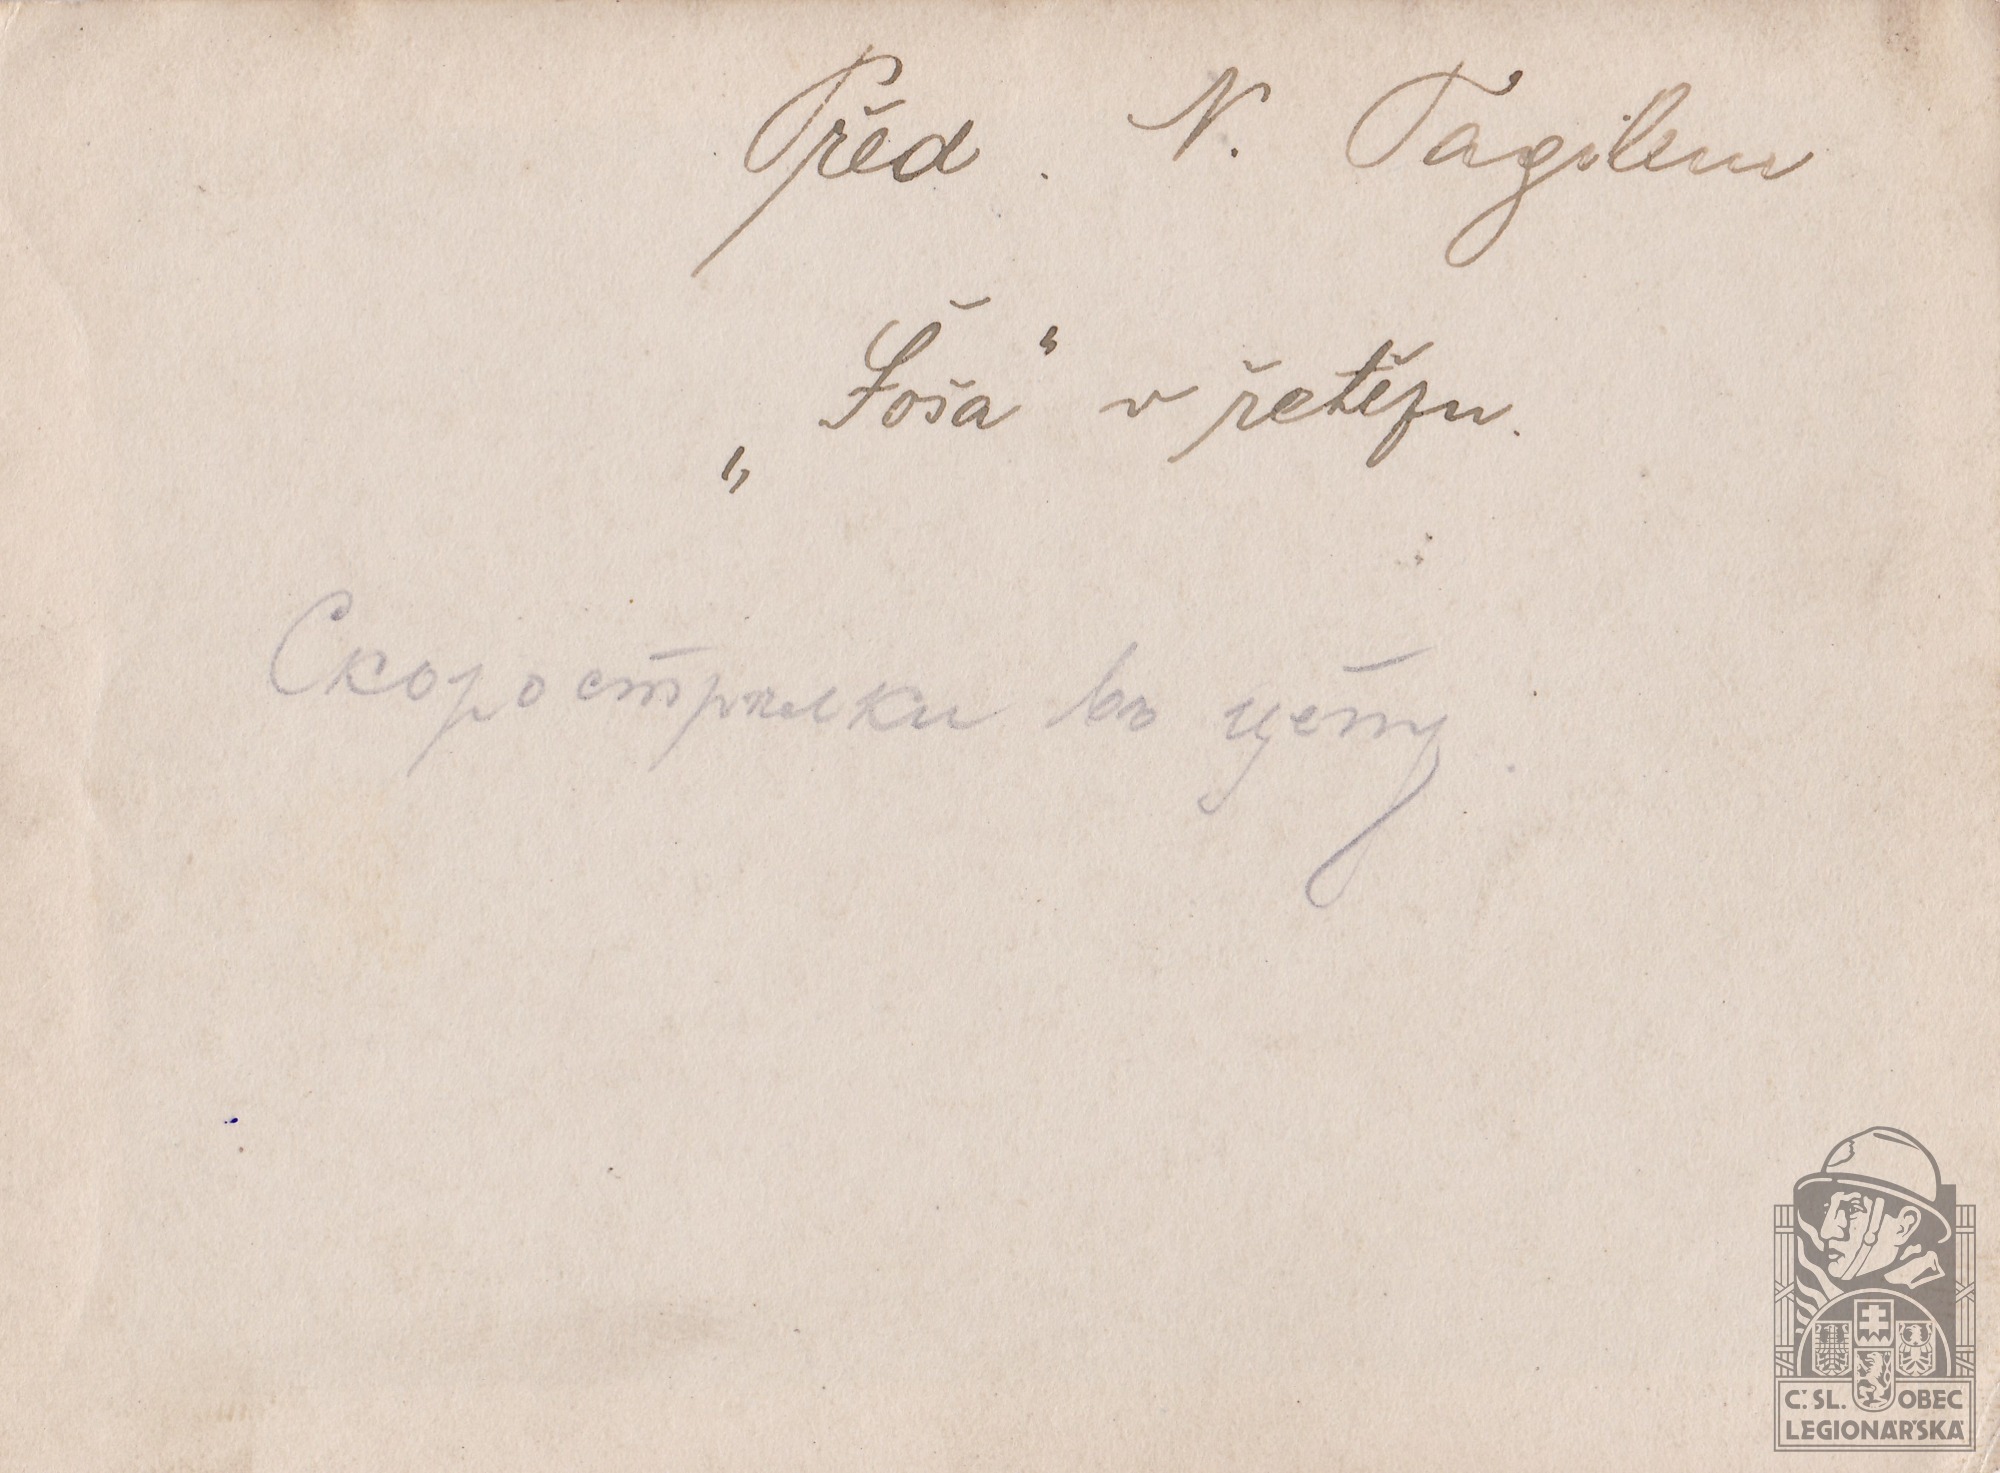 Před N. Tagilem
„Šoša“ v řetězu.
Скорострѣлки въ цепу
Č. SL. OBEC
LEGIONÁŘSKÁ